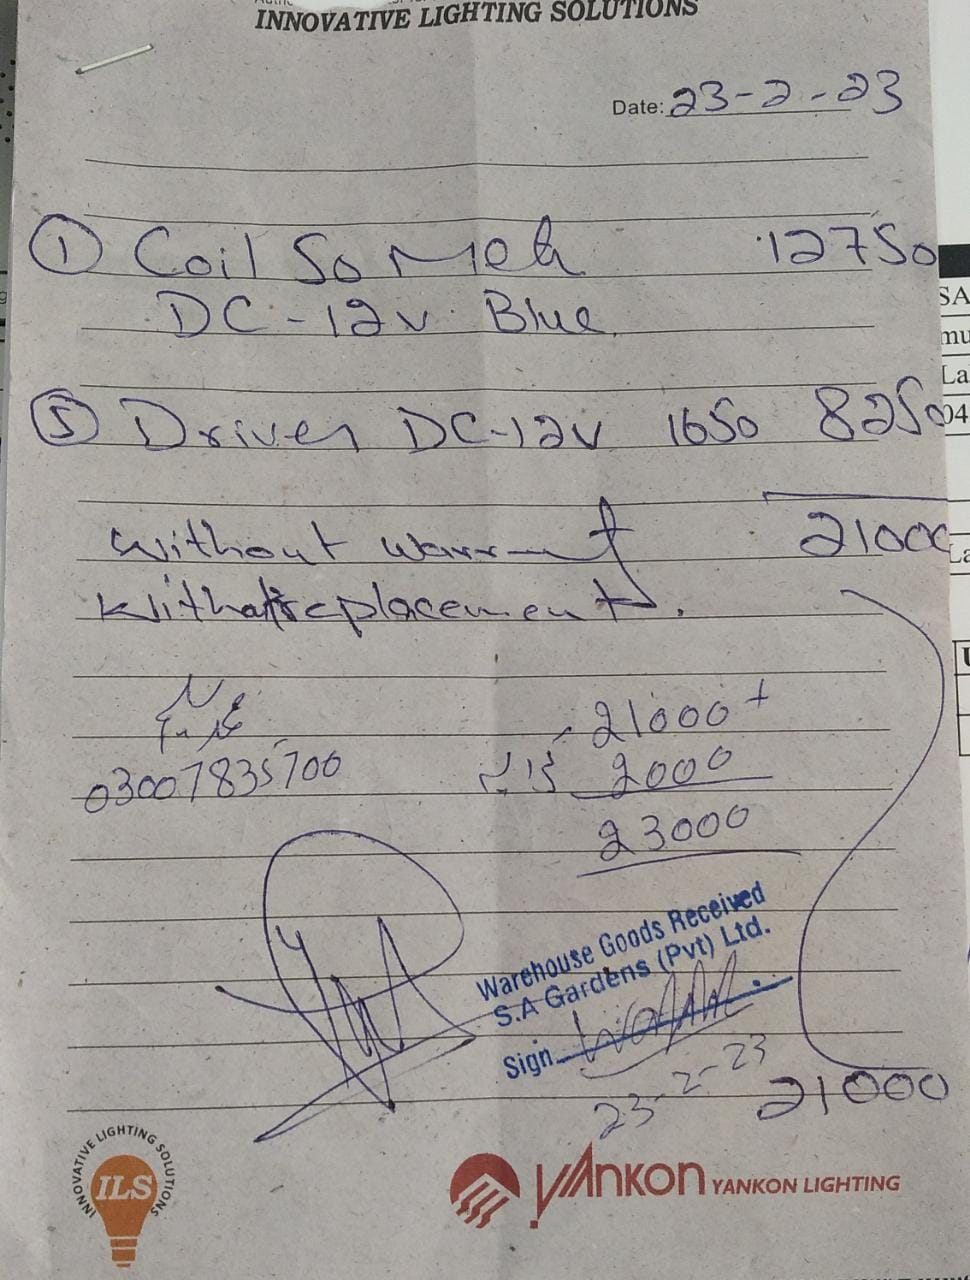 INNOVATIVE LIGHTING SOLUTIONS
Date: 23-2-23
① Coil 50 Meh 12750
DC-12v Blue
⑤ Driver DC-12v 1650 8250
21000
without
replacement.
21000 +
03007835700
2000
23000
Warehouse Goods Received
S.A Gardens (Pvt) Ltd.
Sign
23-2-23
21000
INNOVATIVE LIGHTING SOLUTIONS
ILS
YANKON YANKON LIGHTING
SA
mu
La
04
La
U